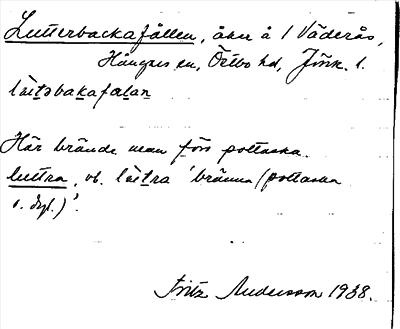 Lutterbackafållen, åker å 1 Väderås,
Hångers sn, Östbo hd, Jönk. l.
Här brände man förs pottaska.
luttra, vb. 'bränna (pottaska
o. dyl.)'.
Fritz Andersson 1938.